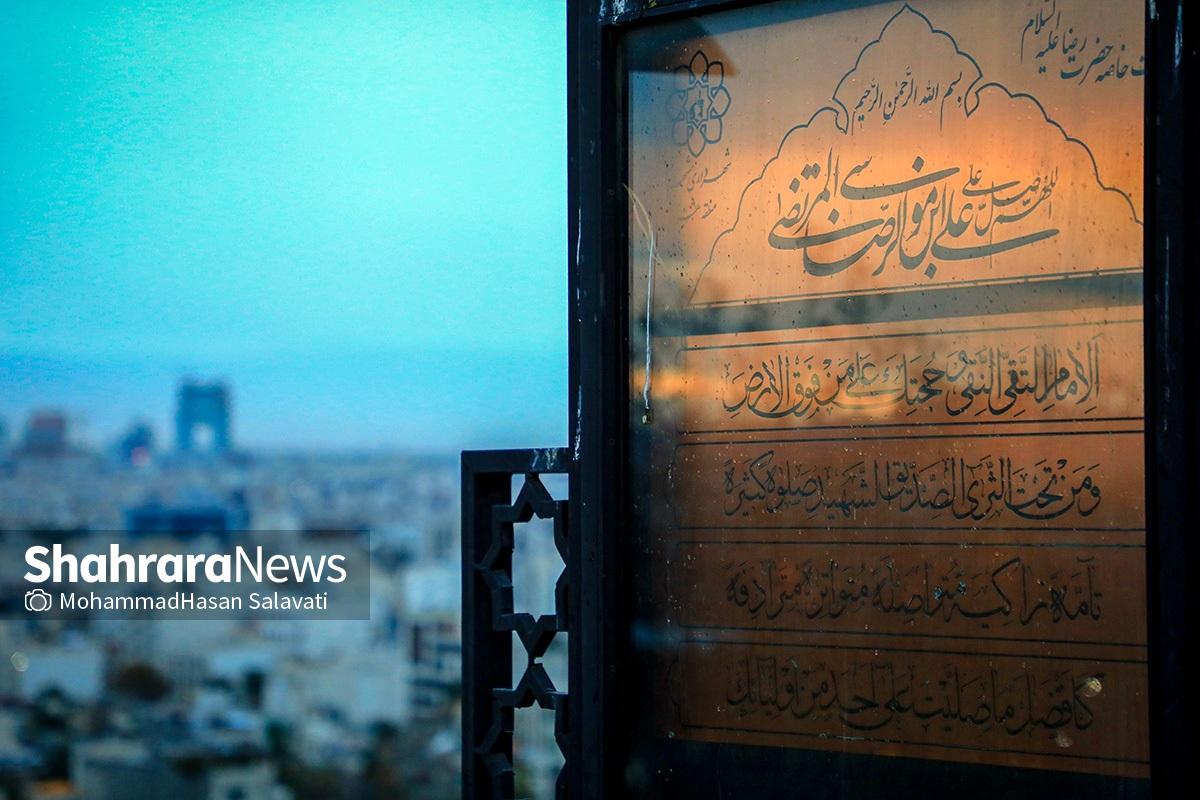 ت خاصه حضرت رضا علیه السلام
بسم الله الرَّحمٰنِ الرَّحیمِ
شهرداری
منطقه
اللهم صل علی علی ابن موسی الرضا المرتضی
اَلاِمامِ التَّقِیِّ النَّقِیِّ وَ حُجَّتِكَ عَلی مَنْ فَوْقَ الاَرْضِ
وَ مَنْ تَحْتَ الثَّری الصِّدّیقِ الشَّهیدِ صَلوةً کَثیرَةً
تآمَّةً زاکِیَةً مُتَواصِلَةً مُتَواتِرَةً مُتَرادِفَةً
کَاَفْضَلِ ما صَلَّیْتَ عَلی اَحَدٍ مِنْ اَوْلِیائِكَ
ShahraraNews
MohammadHasan Salavati